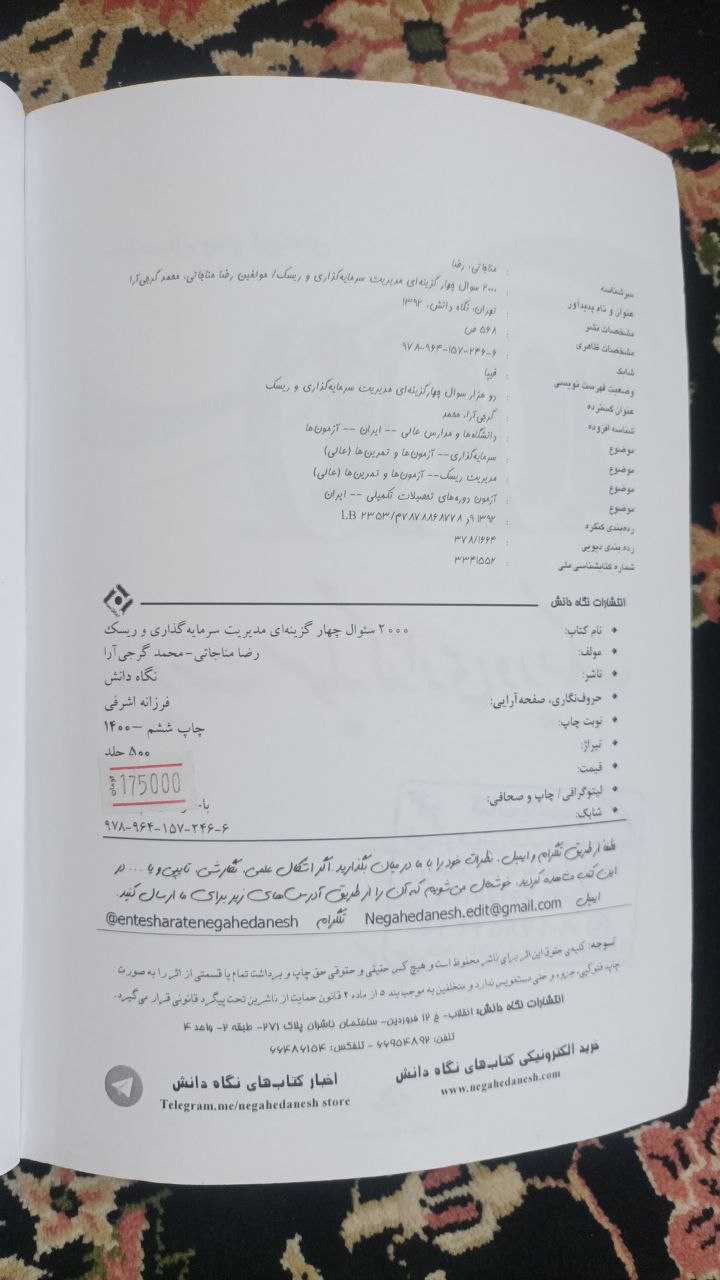 سرشناسه : مناجاتی، رضا
عنوان و نام پدیدآور : ۲۰۰۰ سوال چهار گزینه‌ای مدیریت سرمایه‌گذاری و ریسک/ مولفین رضا مناجاتی، محمد گرجی‌آرا
مشخصات نشر : تهران، نگاه دانش، ۱۳۹۲
مشخصات ظاهری : ۵۶۸ ص
شابک : ۹۷۸-۹۶۴-۱۵۷-۲۴۶-۶
وضعیت فهرست نویسی : فیپا
عنوان گسترده : دو هزار سوال چهارگزینه‌ای مدیریت سرمایه‌گذاری و ریسک
شناسه افزوده : گرجی‌آرا، محمد
موضوع : دانشگاه‌ها و مدارس عالی -- ایران -- آزمون‌ها
موضوع : سرمایه‌گذاری-- آزمون‌ها و تمرین‌ها (عالی)
موضوع : مدیریت ریسک-- آزمون‌ها و تمرین‌ها (عالی)
موضوع : آزمون دوره‌های تحصیلات تکمیلی -- ایران
رده‌بندی کنگره : LB ۲۳۵۳/
رده بندی دیویی : ۳۷۸/۱۶۶۴
شماره کتابشناسی ملی : ۳۳۴۱۵۵۲
انتشارات نگاه دانش
نام کتاب: ۲۰۰۰ سئوال چهار گزینه‌ای مدیریت سرمایه‌گذاری و ریسک
مولف: رضا مناجاتی-محمد گرجی‌آرا
ناشر: نگاه دانش
حروف‌نگاری، صفحه‌آرایی: فرزانه اشرفی
نوبت چاپ: چاپ ششم -۱۴۰۰
تیراژ: ۵۰۰ جلد
قیمت: 175000 تومان
لیتوگرافی/ چاپ و صحافی:
شابک: ۹۷۸-۹۶۴-۱۵۷-۲۴۶-۶
لطفاً از طریق تلگرام و ایمیل، نظرات خود را با ما در میان بگذارید. اگر اشکال علمی، نگارشی، تایپی و یا ... در
این کتاب مشاهده کردید، خوشحال می‌شویم که آن را از طریق آدرس‌های زیر برای ما ارسال کنید.
ایمیل Negahedanesh.edit@gmail.com تلگرام @entesharatenegahedanesh
توجه: کلیه‌ی حقوق این اثر برای ناشر محفوظ است و هیچ کس حقیقی و حقوقی حق چاپ و برداشت تمام یا قسمتی از اثر را به صورت
چاپ فتوکپی، جزوه و حتی دستنویس ندارد و متخلفین به موجب بند ۵ از ماده ۲ قانون حمایت از ناشرین تحت پیگرد قانونی قرار می‌گیرد.
انتشارات نگاه دانش: انقلاب- خ ۱۲ فروردین- ساختمان ناشران پلاک ۲۷۱- طبقه ۲- واحد ۴
تلفن: ۶۶۹۵۴۸۹۲ - تلفکس: ۶۶۴۸۶۱۵۴
خرید الکترونیکی کتاب‌های نگاه دانش
www.negahedanesh.com
اخبار کتاب‌های نگاه دانش
Telegram.me/negahedanesh store